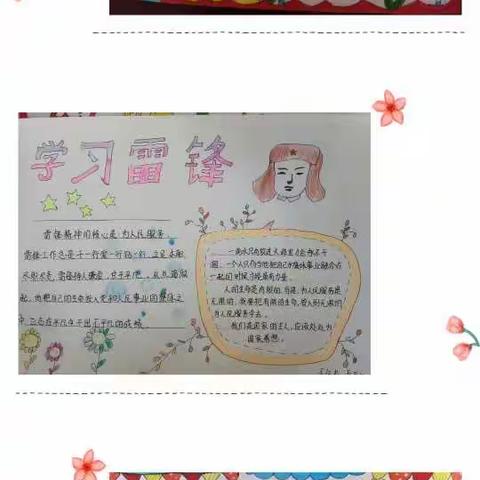 学习雷锋
雷锋精神的核心是为人民服务，
雷锋工作总是干一行爱一行
尽职尽责，雷锋待人谦虚，
起，他把自己的生命投入党和人民事业的整体之
中，己在平凡中干出不平凡的成绩
一滴水只有放进大海里才能永不干
涸，一个人只有当他把自己和集体事业融合在
一起的时候才能最有力量。
人的生命是有限的，可是，为人民服务是
无限的，我要把有限的生命，投入到无限的
为人民服务中去。
我们是国家的主人，应该处处为
国家着想。